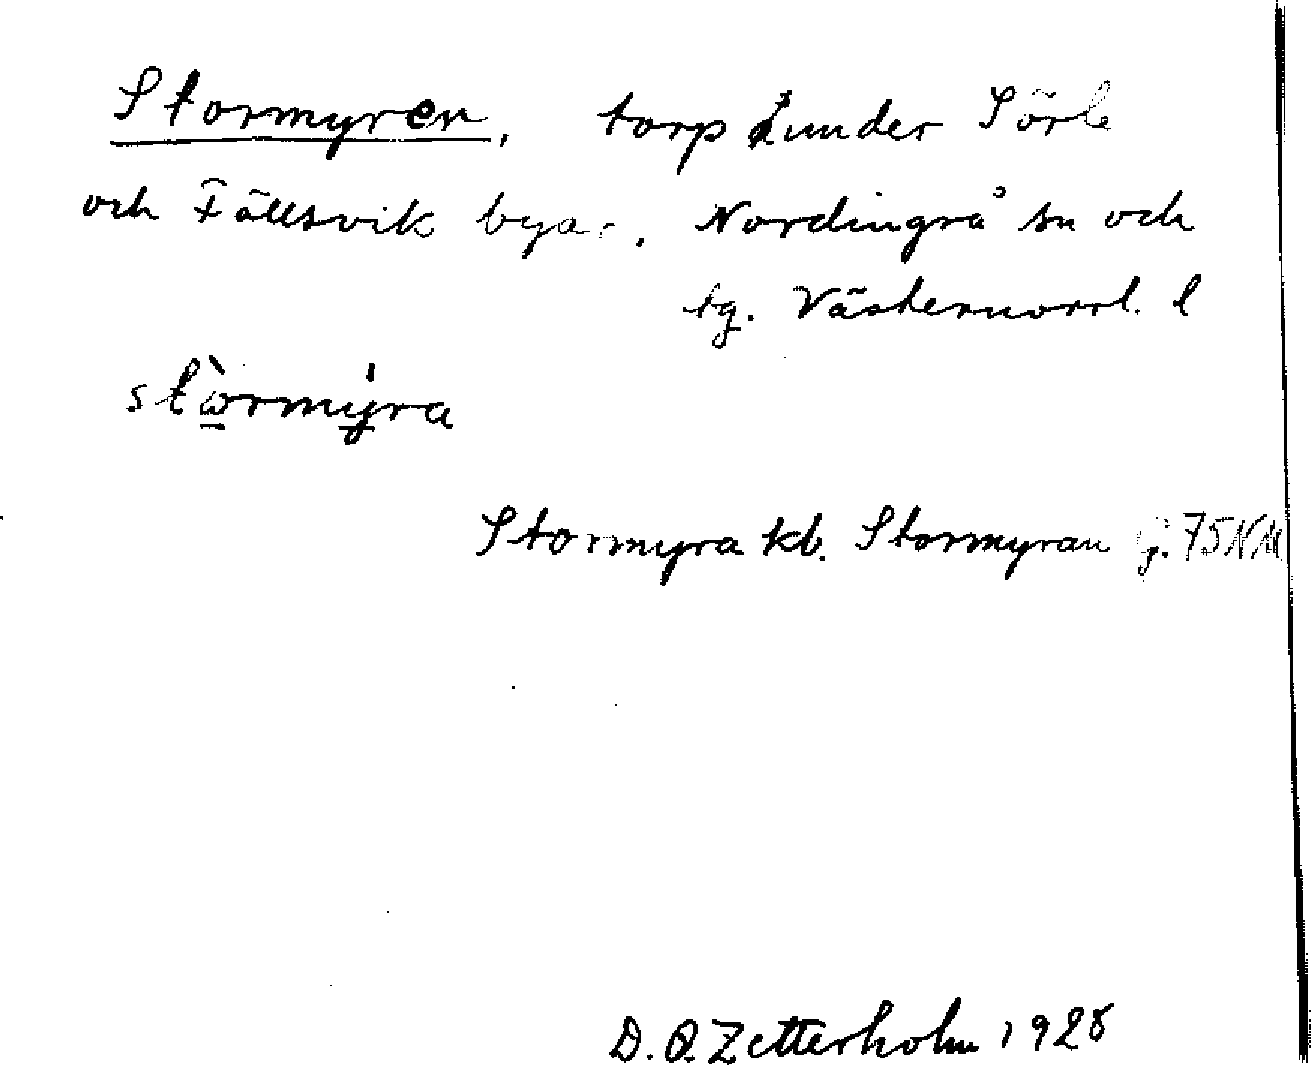 Stormyren, torp under Sörle
och Fällsvik byar. Nordingrå sn och
tg. Västernorrl. l
stòrmy̍ra
Stormyra kb. Stormyran g. 75 NM
D. O. Zetterholm 1928